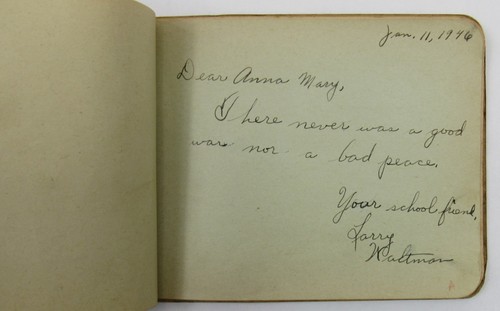 Jan. 11, 1946
Dear Anna Mary,
There never was a good
war nor a bad peace.
Your school friend,
Larry
Waltman